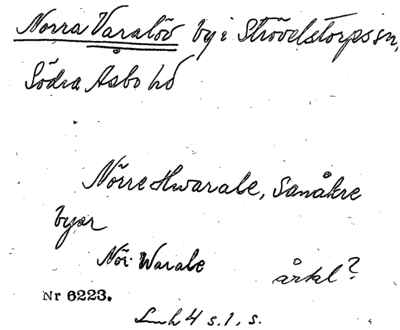 Norra Varalöv by i Strövelstorps sn,
Södra Åsbo hd
Nörre Hwarale, Sanåkre
byar
Nör. Warale
årkl?
Nr 6223.
Lmh 4 s. 1, s.